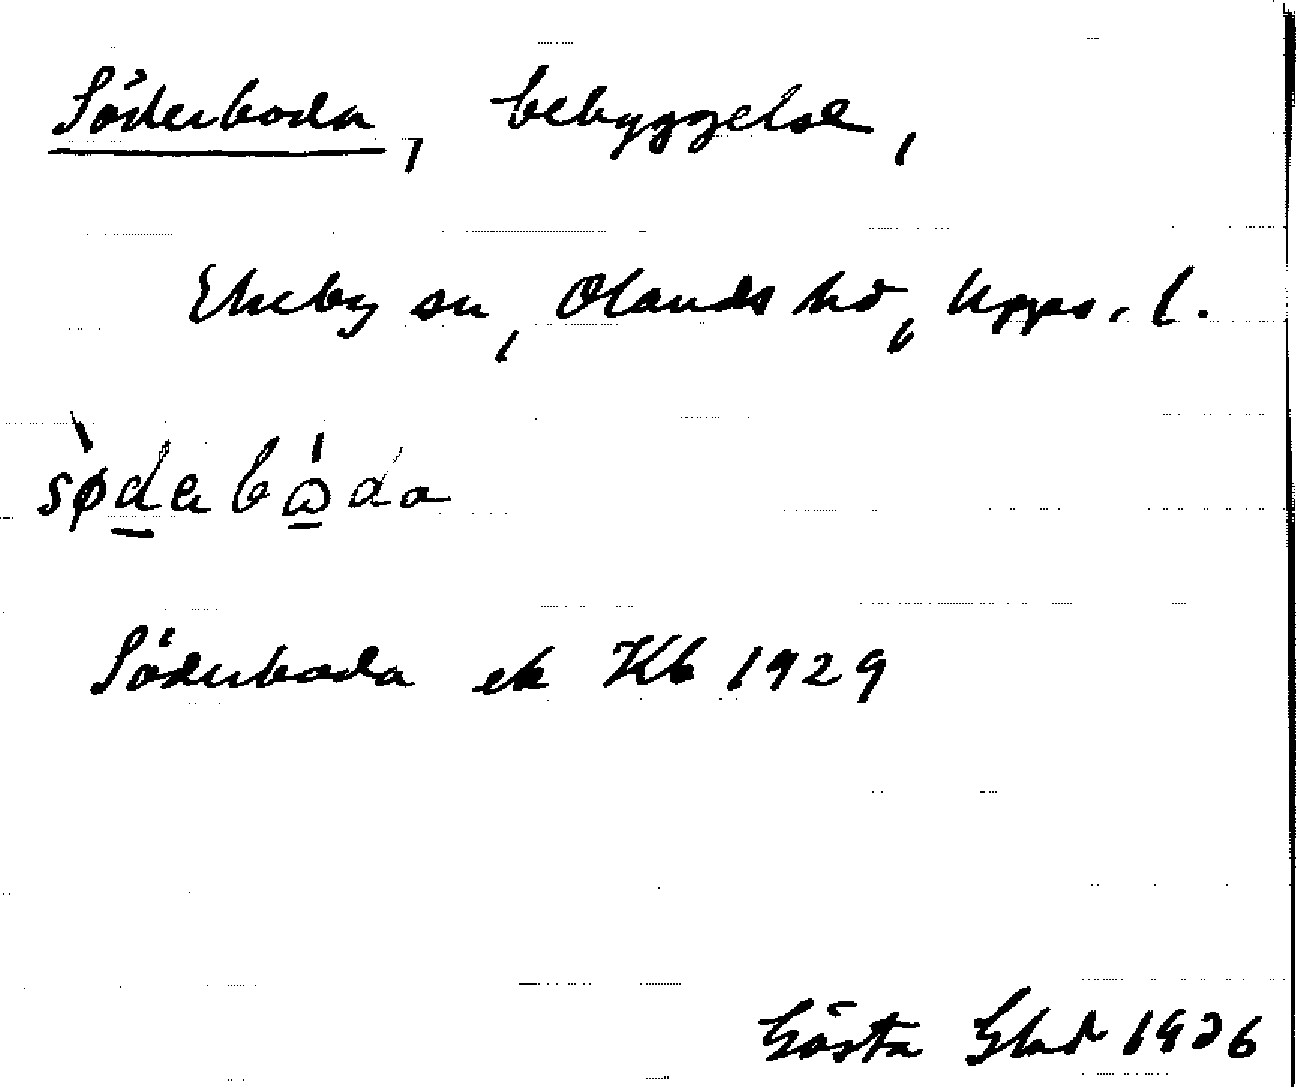 Söderboda, bebyggelse,
Ekeby sn, Olands hd, Upps. l.
Söderboda ek Kb 1929
Gösta 1936